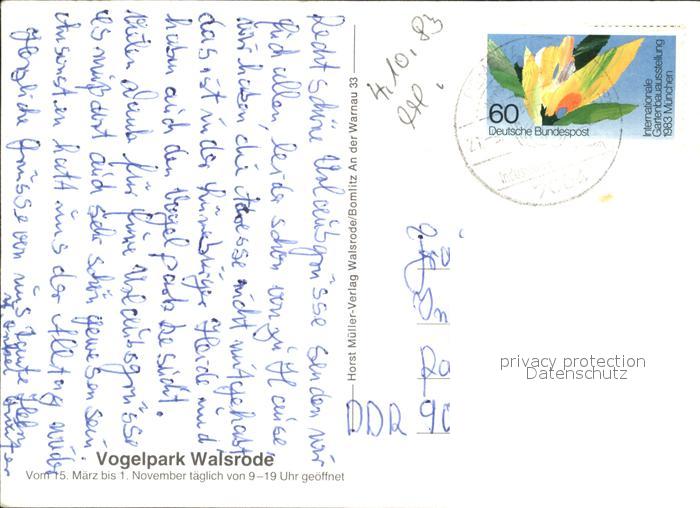 Recht schöne Urlaubsgrüsse senden wir
Euch allen, leider schon von zu Hause
wir haben die Adresse nicht mitgehabt
das ist in der Lüneburger Heide und
haben auch den Vogelpark besucht.
Vielen Dank für Eure Urlaubsgrüsse
es muß dort auch sehr schön gewesen sein.
Ansonsten hat uns der Alltag wieder
Herzliche Grüsse von uns Tante
u. Onkel
Vogelpark Walsrode
Vom 15. März bis 1. November täglich von 9–19 Uhr geöffnet
Horst Müller-Verlag Walsrode/Bomlitz An der Warnau 33
4.10.83
60
Deutsche Bundespost
Internationale
Gartenbauausstellung
1983 München
DDR 90
privacy protection
Datenschutz